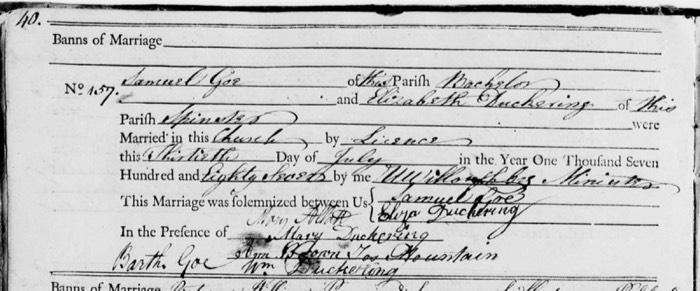 40.
Banns of Marriage
No 157. Samuel Goe of this Parish Bachelor
and Elizabeth Duckering of this
Parish Spinster were
Married in this Church by Licence
this Thirtieth Day of July in the Year One Thousand Seven
Hundred and Eighty Seven by me Minister
This Marriage was solemnized between Us { Samuel Goe
Eliza Duckering
Mary
In the Presence of Mary Duckering
Barthw Goe Wm Brown Jos Mountain
Wm Duckering
Banns of Marriage